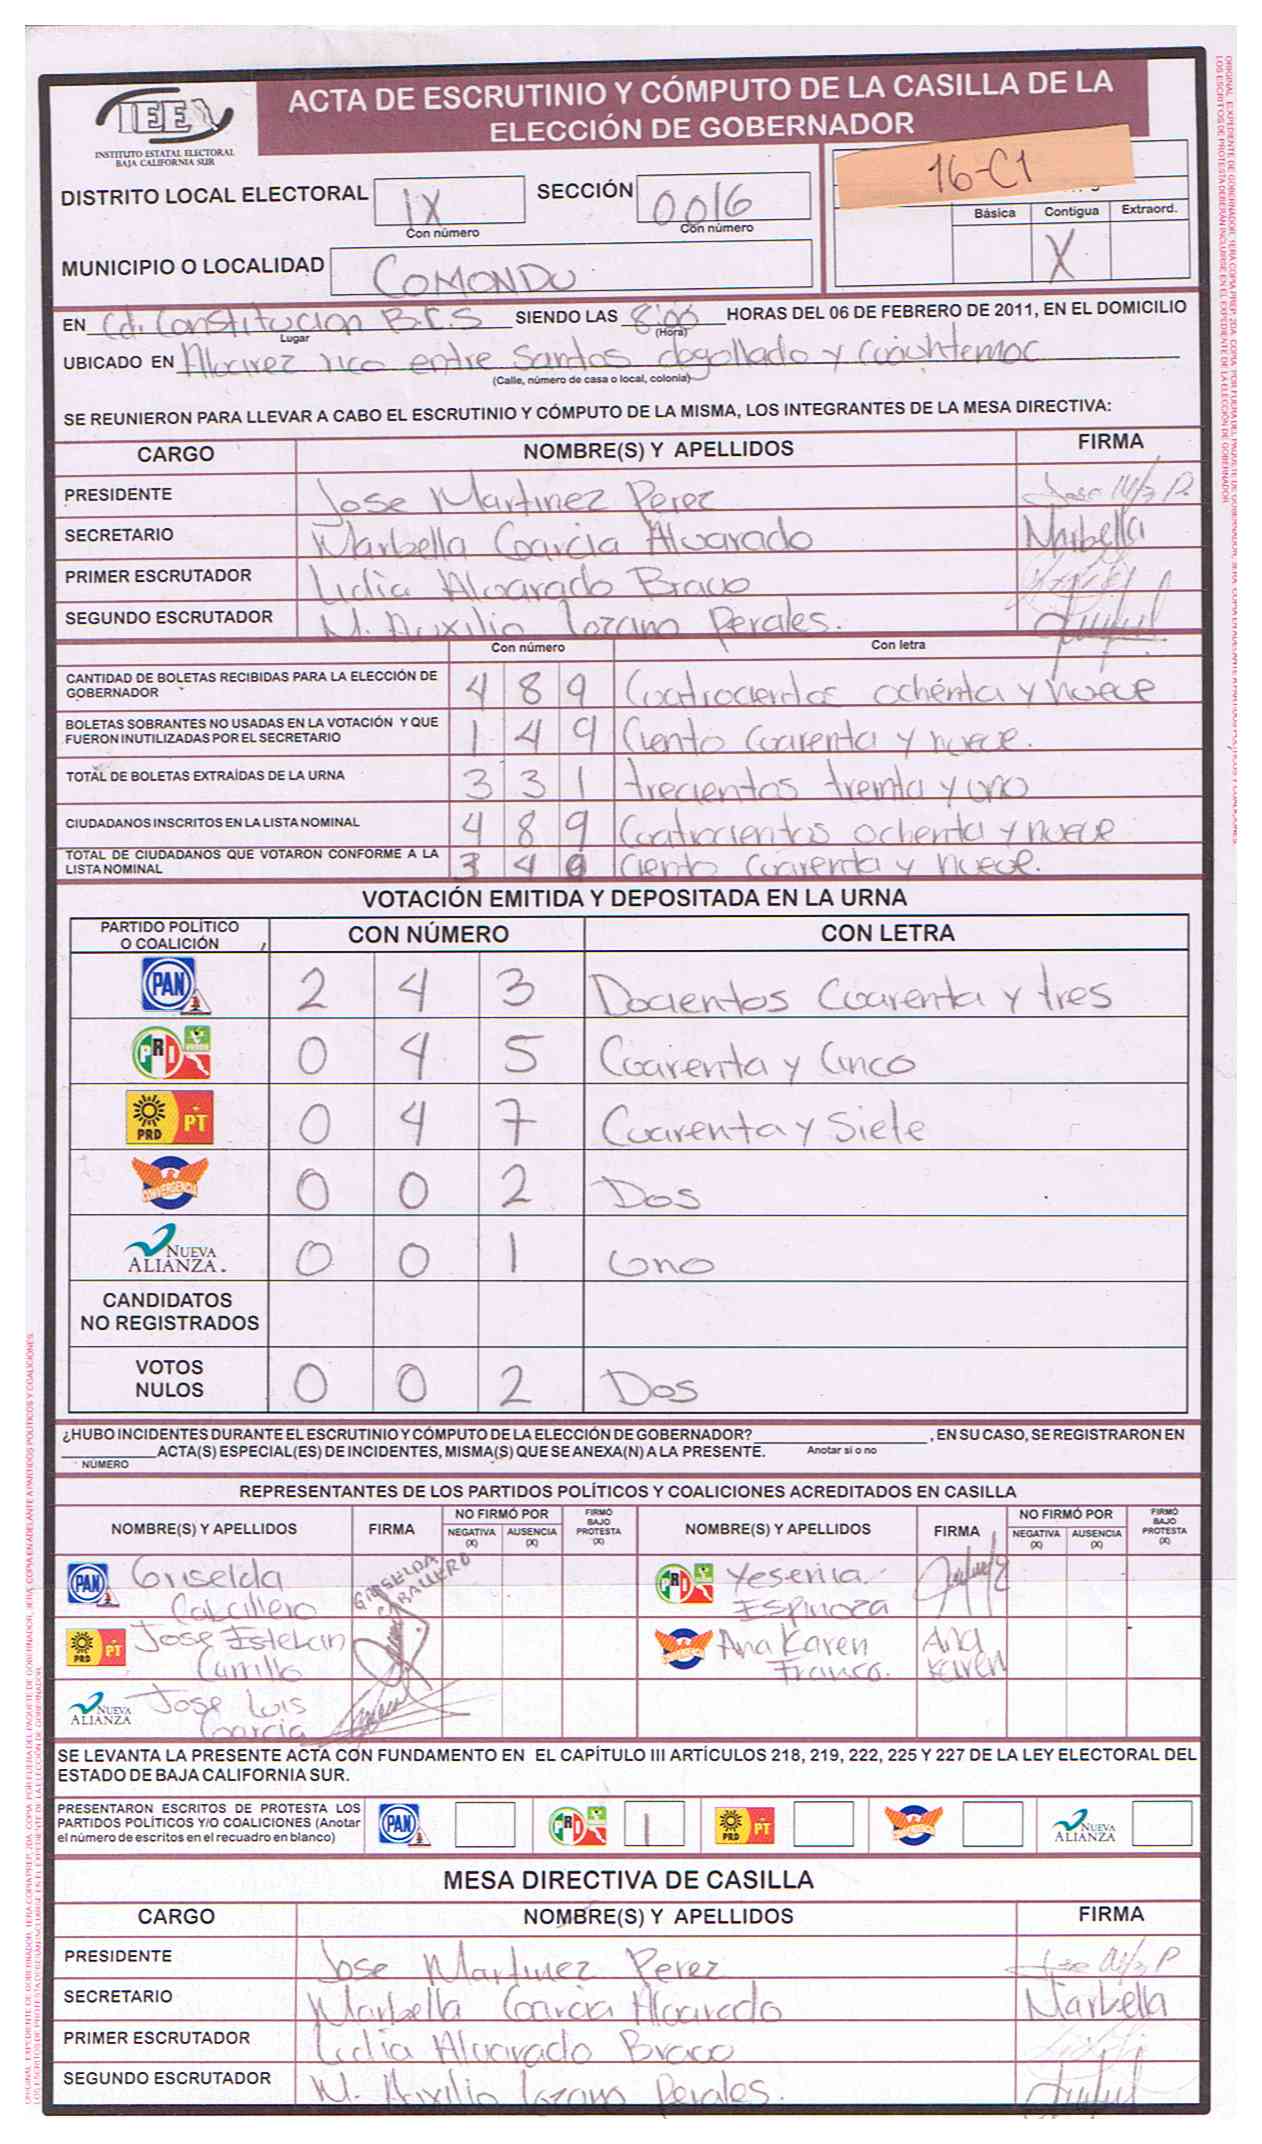 IEE
INSTITUTO ESTATAL ELECTORAL
BAJA CALIFORNIA SUR
ACTA DE ESCRUTINIO Y CÓMPUTO DE LA CASILLA DE LA
ELECCIÓN DE GOBERNADOR
16-C1
DISTRITO LOCAL ELECTORAL IX SECCIÓN 0016
Con número Con número
Básica Contigua Extraord.
X
MUNICIPIO O LOCALIDAD COMONDU
EN Cd. Constitucion B.C.S SIENDO LAS 8:00 HORAS DEL 06 DE FEBRERO DE 2011, EN EL DOMICILIO
Lugar (Hora)
UBICADO EN Alvarez rico entre Santos dogollado y Cuauhtemoc
(Calle, número de casa o local, colonia)
SE REUNIERON PARA LLEVAR A CABO EL ESCRUTINIO Y CÓMPUTO DE LA MISMA, LOS INTEGRANTES DE LA MESA DIRECTIVA:
CARGO NOMBRE(S) Y APELLIDOS FIRMA
PRESIDENTE Jose Martinez Perez
SECRETARIO Marbella Garcia Alvarado Marbella
PRIMER ESCRUTADOR Lidia Alvarado Bravo
SEGUNDO ESCRUTADOR M. Auxilio Lozano Perales.
Con número Con letra
CANTIDAD DE BOLETAS RECIBIDAS PARA LA ELECCIÓN DE
GOBERNADOR 4 8 9 Cuatrocientos ochenta y nueve
BOLETAS SOBRANTES NO USADAS EN LA VOTACIÓN Y QUE
FUERON INUTILIZADAS POR EL SECRETARIO 1 4 9 Ciento Cuarenta y nueve.
TOTAL DE BOLETAS EXTRAÍDAS DE LA URNA 3 3 1 trecientos treinta y uno
CIUDADANOS INSCRITOS EN LA LISTA NOMINAL 4 8 9 Cuatrocientos ochenta y nueve
TOTAL DE CIUDADANOS QUE VOTARON CONFORME A LA
LISTA NOMINAL 3 4 0 Ciento Cuarenta y nueve.
VOTACIÓN EMITIDA Y DEPOSITADA EN LA URNA
PARTIDO POLÍTICO
O COALICIÓN CON NÚMERO CON LETRA
PAN 2 4 3 Docientos Cuarenta y tres
PRI 0 4 5 Cuarenta y Cinco
PRD PT 0 4 7 Cuarenta y Siete
CONVERGENCIA 0 0 2 Dos
NUEVA ALIANZA 0 0 1 Uno
CANDIDATOS
NO REGISTRADOS
VOTOS
NULOS 0 0 2 Dos
¿HUBO INCIDENTES DURANTE EL ESCRUTINIO Y CÓMPUTO DE LA ELECCIÓN DE GOBERNADOR? , EN SU CASO, SE REGISTRARON EN
ACTA(S) ESPECIAL(ES) DE INCIDENTES, MISMA(S) QUE SE ANEXA(N) A LA PRESENTE. Anotar si o no
NÚMERO
REPRESENTANTES DE LOS PARTIDOS POLÍTICOS Y COALICIONES ACREDITADOS EN CASILLA
NOMBRE(S) Y APELLIDOS FIRMA NO FIRMÓ POR NEGATIVA (X) AUSENCIA (X) FIRMÓ BAJO PROTESTA (X) NOMBRE(S) Y APELLIDOS FIRMA NO FIRMÓ POR NEGATIVA (X) AUSENCIA (X) FIRMÓ BAJO PROTESTA (X)
PAN Griselda Caballero GRISELDA CABALLERO PRI Yesenia Espinoza
PRD PT Jose Esteban Carrillo Ana Karen Franco. Ana Karen
NUEVA ALIANZA Jose Luis Garcia
SE LEVANTA LA PRESENTE ACTA CON FUNDAMENTO EN EL CAPÍTULO III ARTÍCULOS 218, 219, 222, 225 Y 227 DE LA LEY ELECTORAL DEL
ESTADO DE BAJA CALIFORNIA SUR.
PRESENTARON ESCRITOS DE PROTESTA LOS
PARTIDOS POLÍTICOS Y/O COALICIONES (Anotar
el número de escritos en el recuadro en blanco) PAN PRI 1 PRD PT NUEVA ALIANZA
MESA DIRECTIVA DE CASILLA
CARGO NOMBRE(S) Y APELLIDOS FIRMA
PRESIDENTE Jose Martinez Perez
SECRETARIO Marbella Garcia Alvarado Marbella
PRIMER ESCRUTADOR Lidia Alvarado Bravo
SEGUNDO ESCRUTADOR M. Auxilio Lozano Perales.